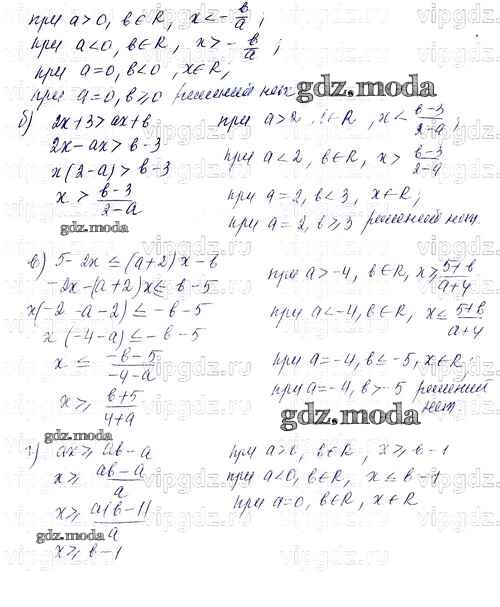 при a>0, b∈R, x<-b/a;
при a<0, b∈R, x>-b/a;
при a=0, b<0, x∈R;
при a=0, b≥0 решений нет
gdz.moda
б) 2x+3>ax+b
2x-ax>b-3
x(2-a)>b-3
x > (b-3)/(2-a)
gdz.moda
при a>2, b∈R, x< (b-3)/(2-a);
при a<2, b∈R, x> (b-3)/(2-a)
при a=2, b<3, x∈R;
при a=2, b≥3 решений нет.
в) 5-2x≤(a+2)x-b
-2x-(a+2)x≤-b-5
x(-2-a-2)≤-b-5
x(-4-a)≤-b-5
x ≤ (-b-5)/(-4-a)
x ≥ (b+5)/(4+a)
при a>-4, b∈R, x≥(5+b)/(a+4)
при a<-4, b∈R, x≤(5+b)/(a+4)
при a=-4, b≤-5, x∈R;
при a=-4, b>-5 решений
нет
gdz.moda
г) ax≥ab-a
x≥ (ab-a)/a
x≥ a(b-1)/a
gdz.moda
x≥b-1
при a>0, b∈R, x≥b-1
при a<0, b∈R, x≤b-1
при a=0, b∈R, x∈R
vipgdz.ru